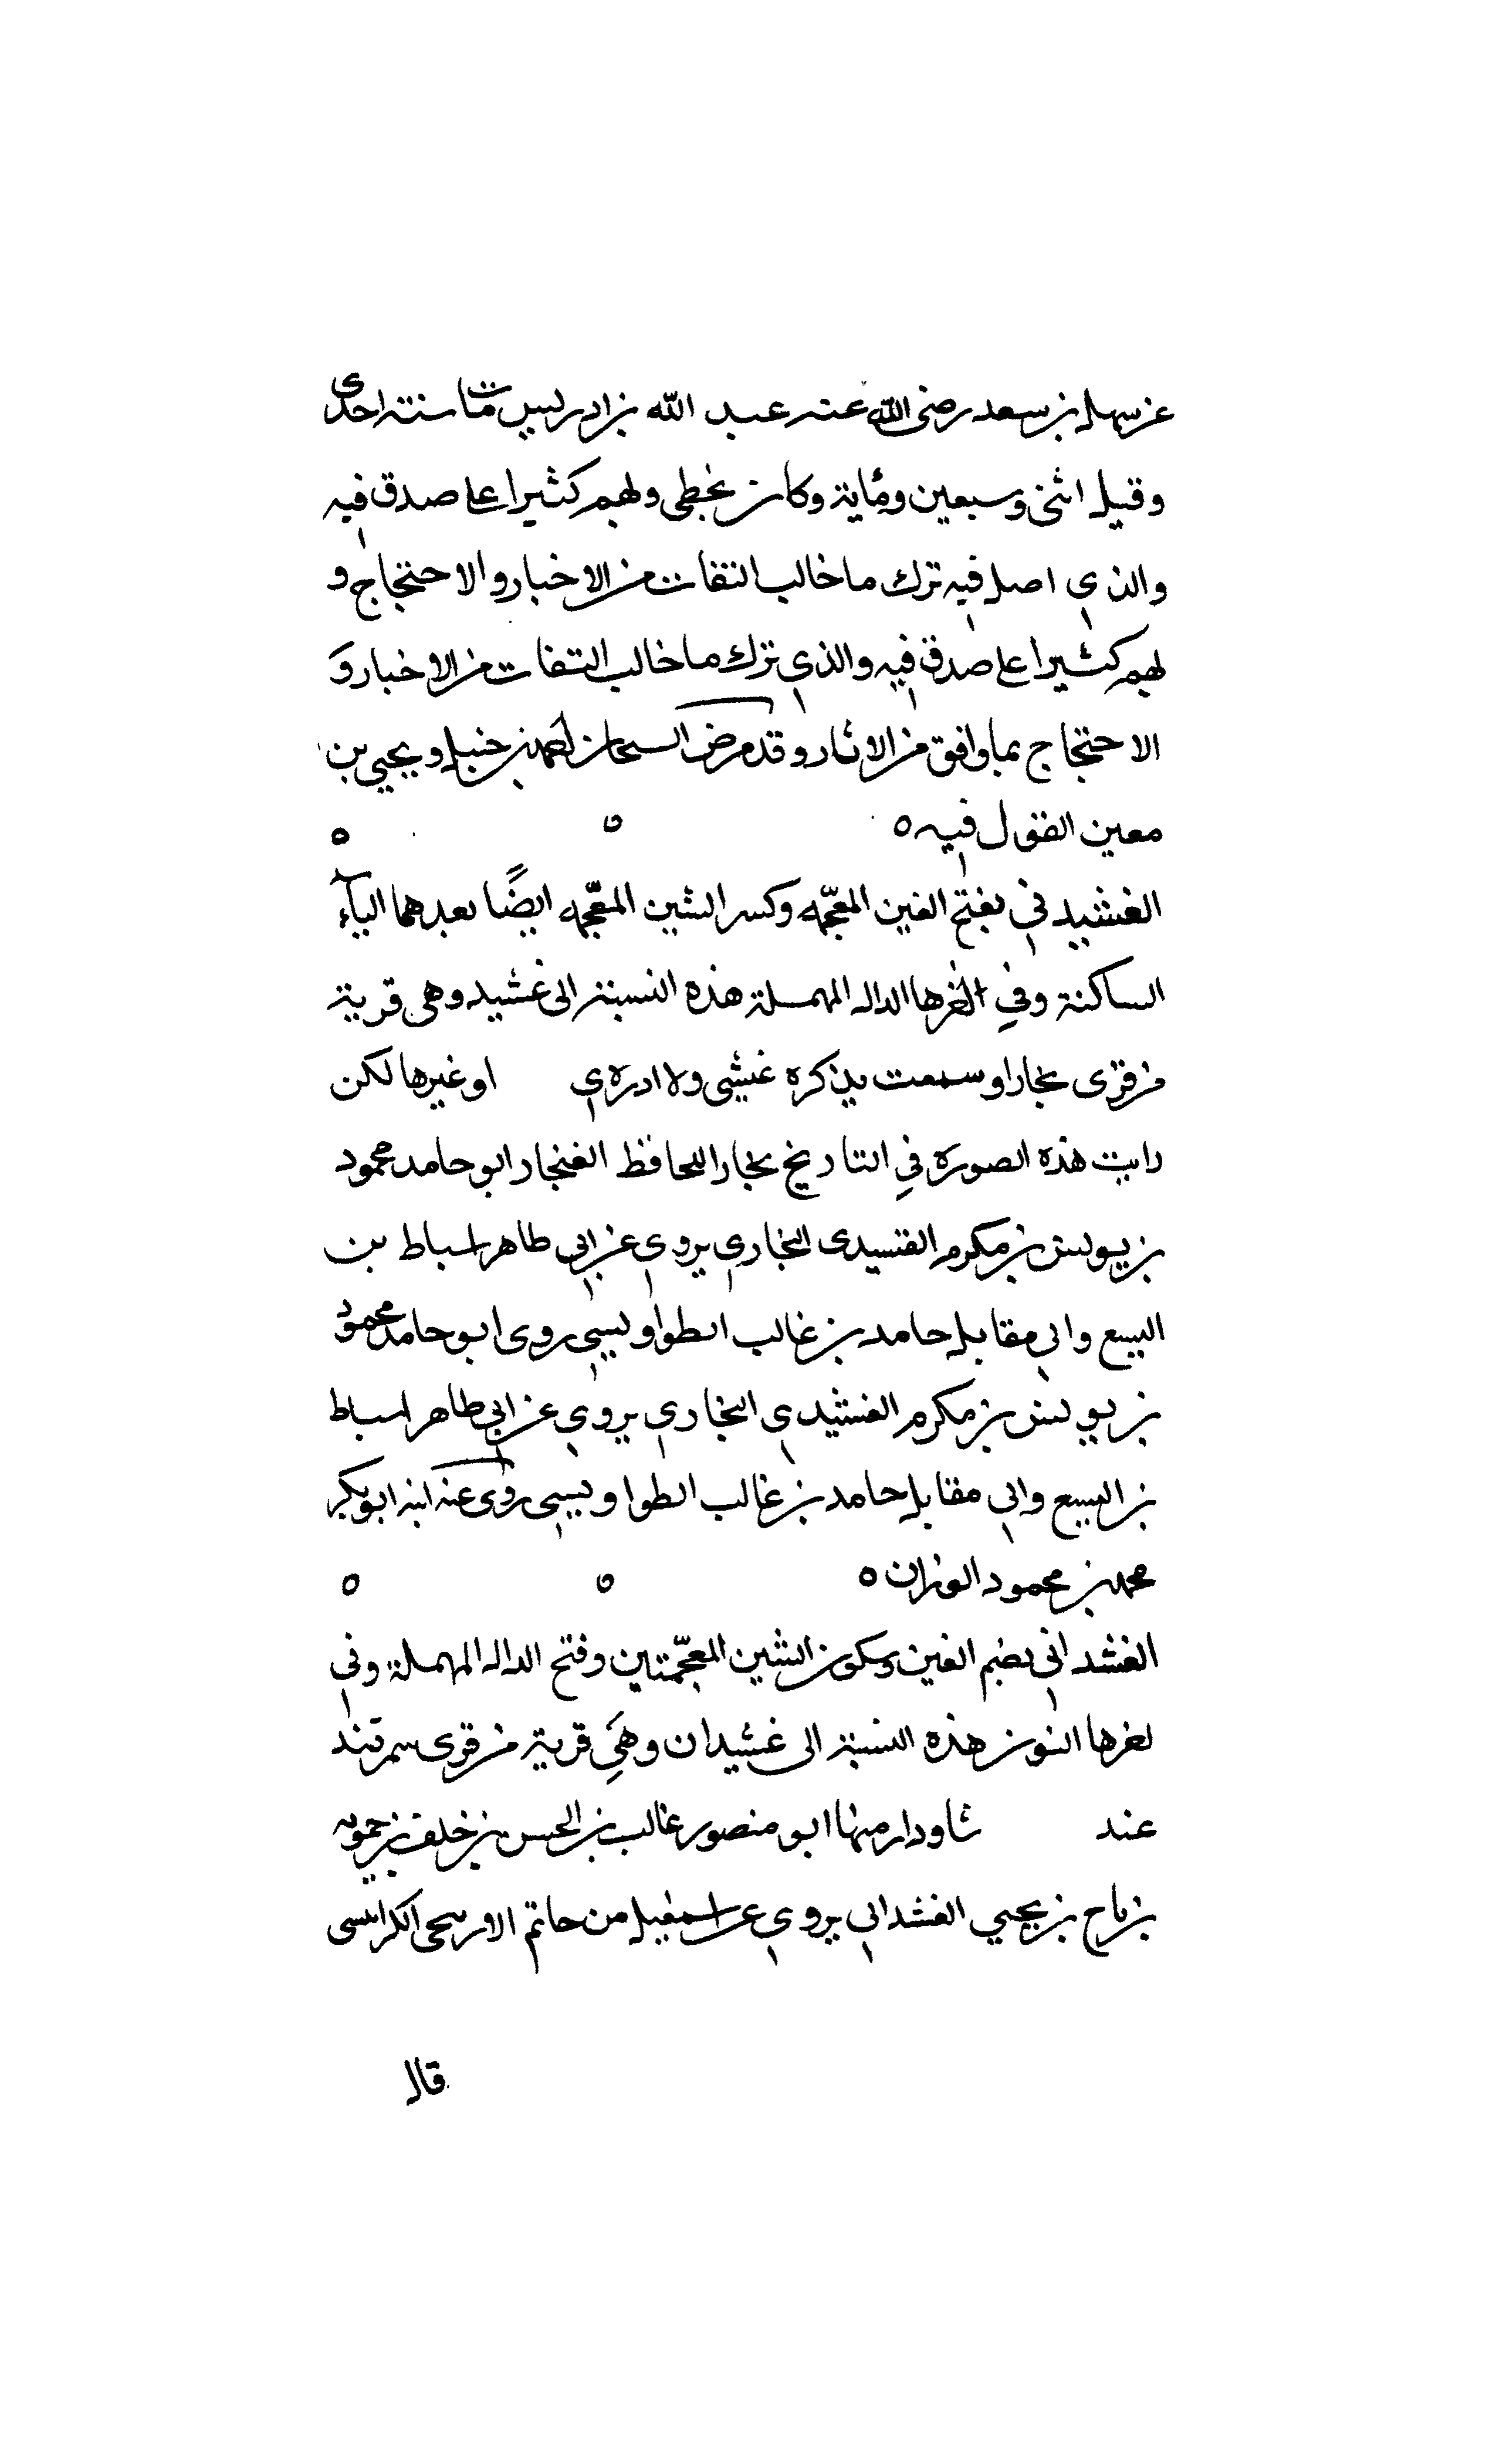 عن سهل بن سعد رضى الله عنه عبد الله بن ادريس مات سنة احدى
وقيل اثنى وسبعين ومئاية وكان يخطى ولهم كثيرا على صدق فيه
والذي اصل فيه ترك ما خالب الثقات من الاخبار والاحتجاج و
لهم كثيرا على صدق فيه والذي ترك ما خالب الثقات من الاخبار و
الاحتجاج بما وافق من الاثار وقد مرض السحان احمد بن حنبل ويحيي بن
معين القول فيه ه ه ه
الغشيد في بفتح الغين المعجمه وكسر الشين المعجمه ايضًا بعدهما اليآء
الساكنة وفي اخرها الدال المهملة هذه النسبة الى غشيد وهي قرية
من قرى بخارا وسمعت يذكره غيشى ولا ادرى او غيرها لكن
رايت هذه الصورة في التاريخ بخارا للحافظ الغنجار ابو حامد محمود
بن يونس بن مكرم القنسيدى البخاري يروي عن ابي طاهر اسباط بن
اليسع وابي مقابل حامد بن غالب الطواويسي روى ابو حامد محمود
بن يونس بن مكرم الغشيدي البخاري يروي عن ابي طاهر اسباط
بن اليسع وابي مقابل حامد بن غالب الطواويسي روى عنه ابنه ابو بكر
محمد بن محمود الوزان ه ه ه
الغشداني بضم الغين وسكون الشين المعجمتين وفتح الدال المهملة وفي
اخرها النون هذه النسبة الى غشيدان وهي قرية من قرى سمرقند
عند شاودار منها ابو منصور غالب بن الحسن بن خلف بن حمويه
بن ناح بن يحيي الغشداني يروي عن اسمعيل من حاتم الكرابيسى
قال